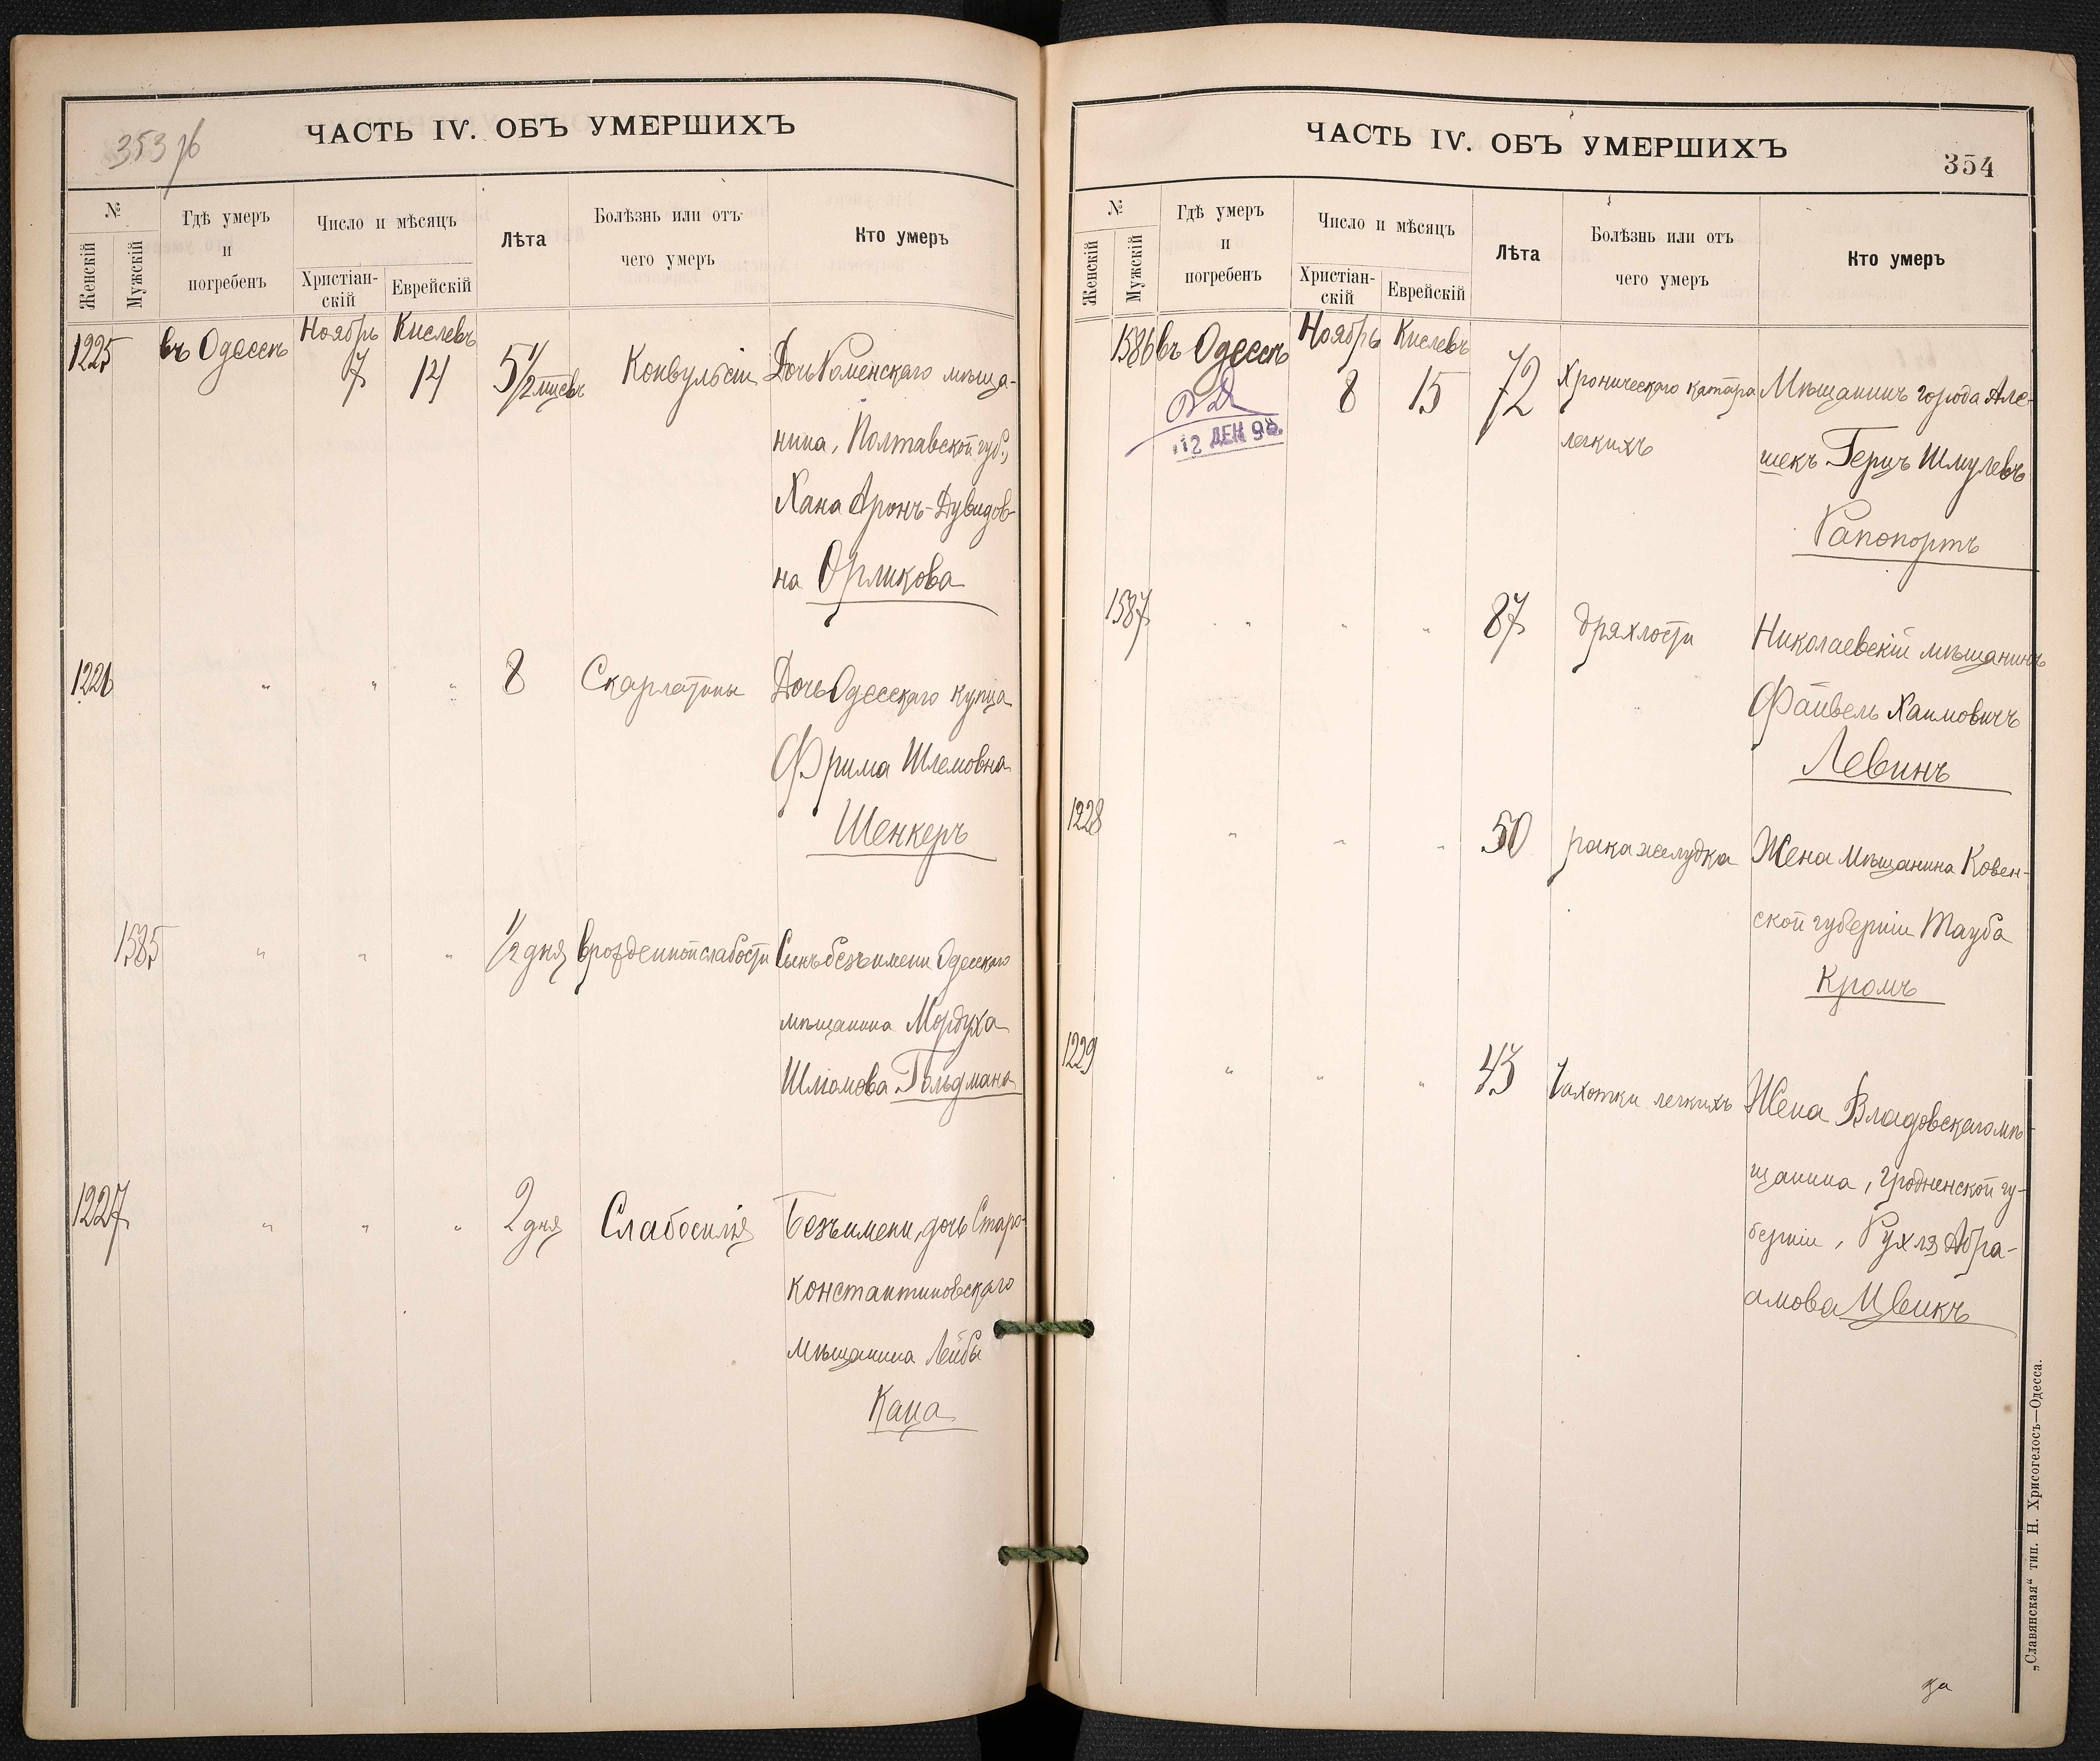 353 об
ЧАСТЬ IV. ОБЪ УМЕРШИХЪ
№
Женскій
Мужскій
Гдѣ умеръ
и
погребенъ
Число и мѣсяцъ
Христіан-
скій
Еврейскій
Лѣта
Болѣзнь или отъ
чего умеръ
Кто умеръ
1225 въ Одессѣ Ноябрь 7 Кислевъ 14 5 1/2 мѣсяв Конвульсіи Дочь Роменскаго мѣща-
нина, Полтавской губ.,
Хана Аронъ-Дувидов-
на Орликова
1226 " " " 8 Скарлатины Дочь Одесскаго купца
Фрима Шлемовна
Шенкеръ
1585 " " " 1/2 дня врожденной слабости Сынъ безъ имени Одесскаго
мѣщанина Мордуха
Шліомова Гольдмана
1227 " " " 2 дня Слабосилія Безъ имени, дочь Старо-
константиновскаго
мѣщанина Лейбы
Каца
ЧАСТЬ IV. ОБЪ УМЕРШИХЪ
354
№
Женскій
Мужскій
Гдѣ умеръ
и
погребенъ
Число и мѣсяцъ
Христіан-
скій
Еврейскій
Лѣта
Болѣзнь или отъ
чего умеръ
Кто умеръ
1586 въ Одессѣ Ноябрь 8 Кислевъ 15 72 Хроническаго катара Мѣщанинъ города Але-
легкихъ
12 ДЕК 98.
шекъ Герцъ Шмулевъ
Рапопортъ
1587 " " " 87 дряхлости Николаевскій мѣщанинъ
Файвель Хаимовичъ
Левинъ
1228 " " " 50 рака желудка Жена мѣщанина Ковен-
ской губерніи Тауба
Кромъ
1229 " " " 43 Чахотки легкихъ Жена Владовскаго мѣ-
щанина, Гродненской гу-
берніи, Рухля Абра-
амова Цвикъ
„Славянская“ тип. Н. Хрисогелосъ—Одесса.